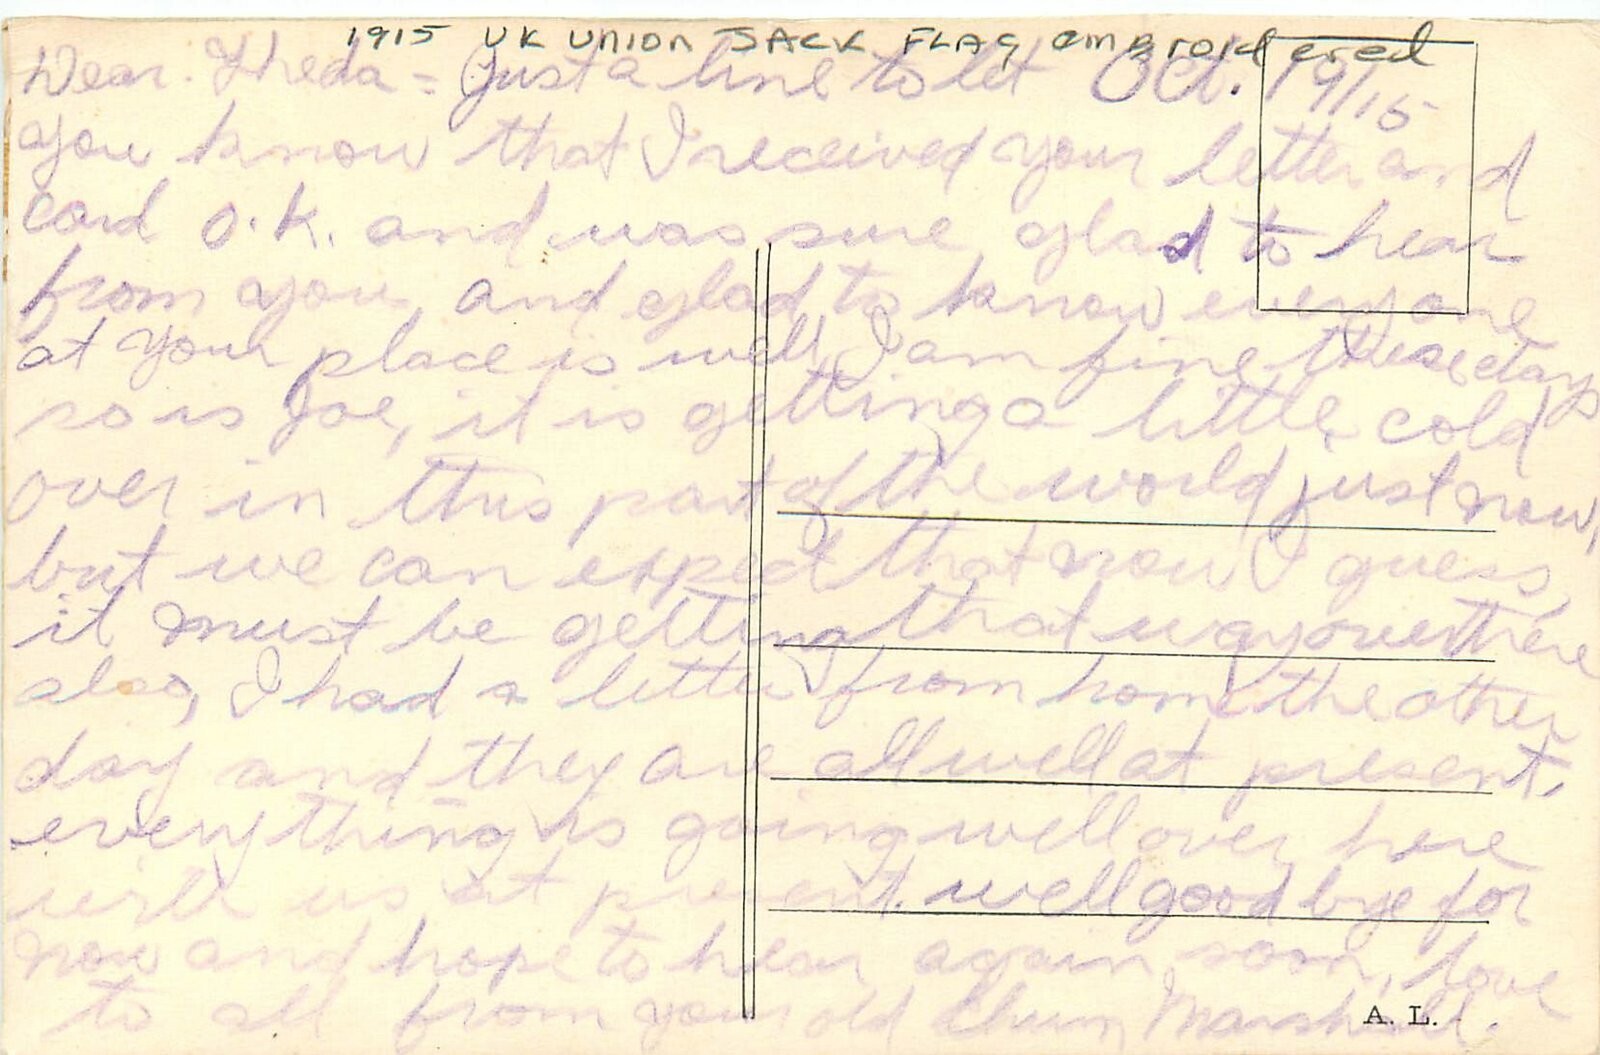 1915 UK UNION JACK FLAG embroidered
Dear Theda = Just a line to let Oct. 19/15
you know that I received your letter and
card O.K. and was sure glad to hear
from you, and glad to know everyone
at your place is well, I am fine these days
so is Joe, it is getting a little cold
over in this part of the world just now,
but we can expect that now I guess,
it must be getting that way over there
also, I had a letter from home the other
day and they are all well at present,
everything is going well over here
with us at present. well good bye for
now and hope to hear again soon, love
to all from your old Chum Marshall.
A. L.